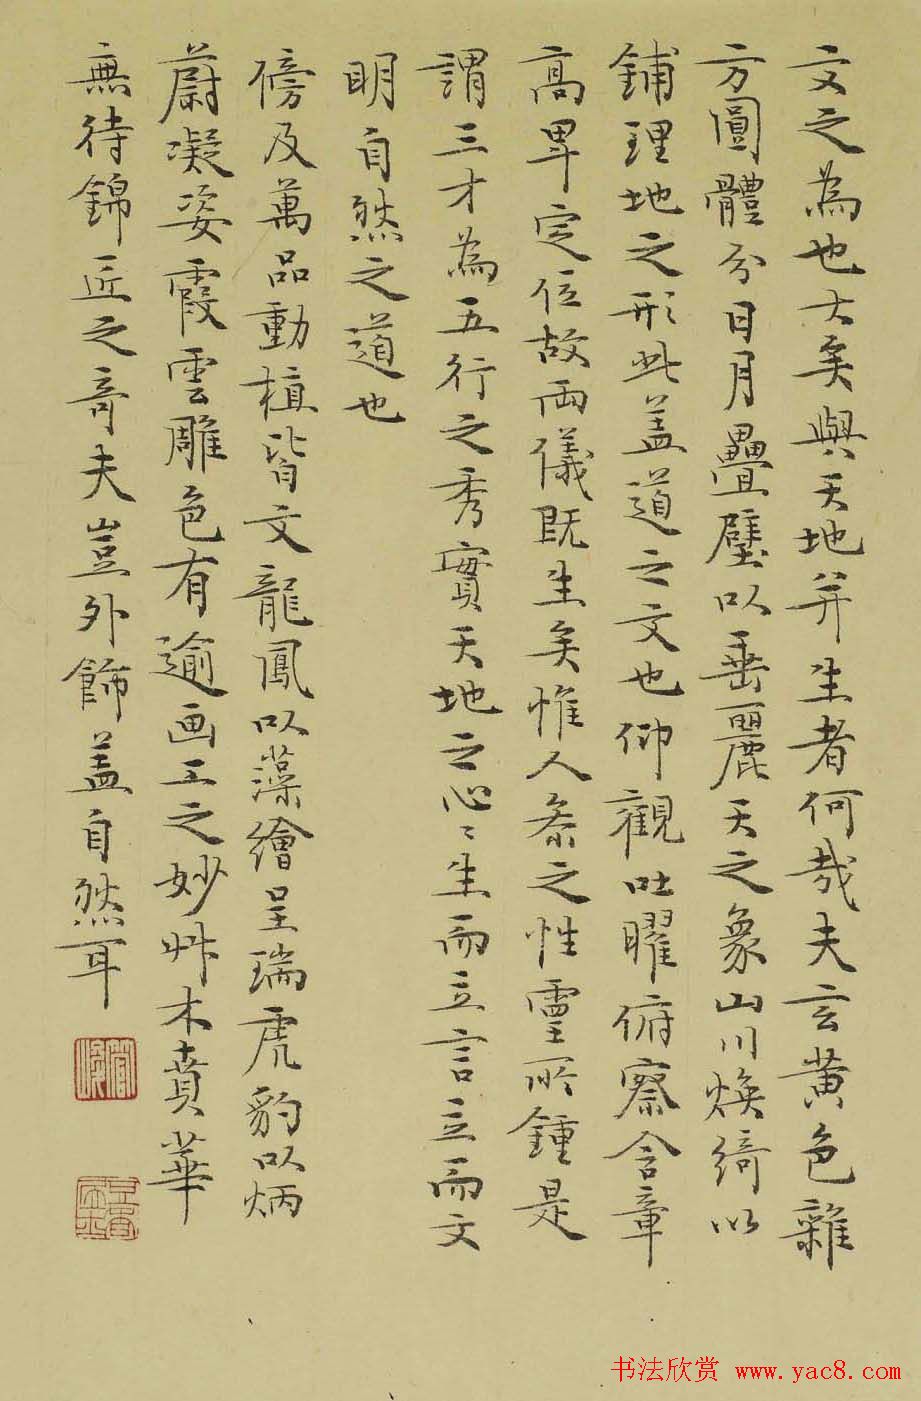 文之為也大矣與天地并生者何哉夫玄黄色雜
方圓體分日月疊璧以垂麗天之象山川煥綺以
鋪理地之形此盖道之文也仰觀吐曜俯察含章
高卑定位故兩儀既生矣惟人叅之性靈所鍾是
謂三才為五行之秀實天地之心〻生而立言立而文
明自然之道也
傍及萬品動植皆文龍鳳以藻繪呈瑞虎豹以炳
蔚凝姿霞雲雕色有逾画工之妙艸木賁華
無待錦匠之奇夫豈外飾盖自然耳
书法欣赏 www.yac8.com